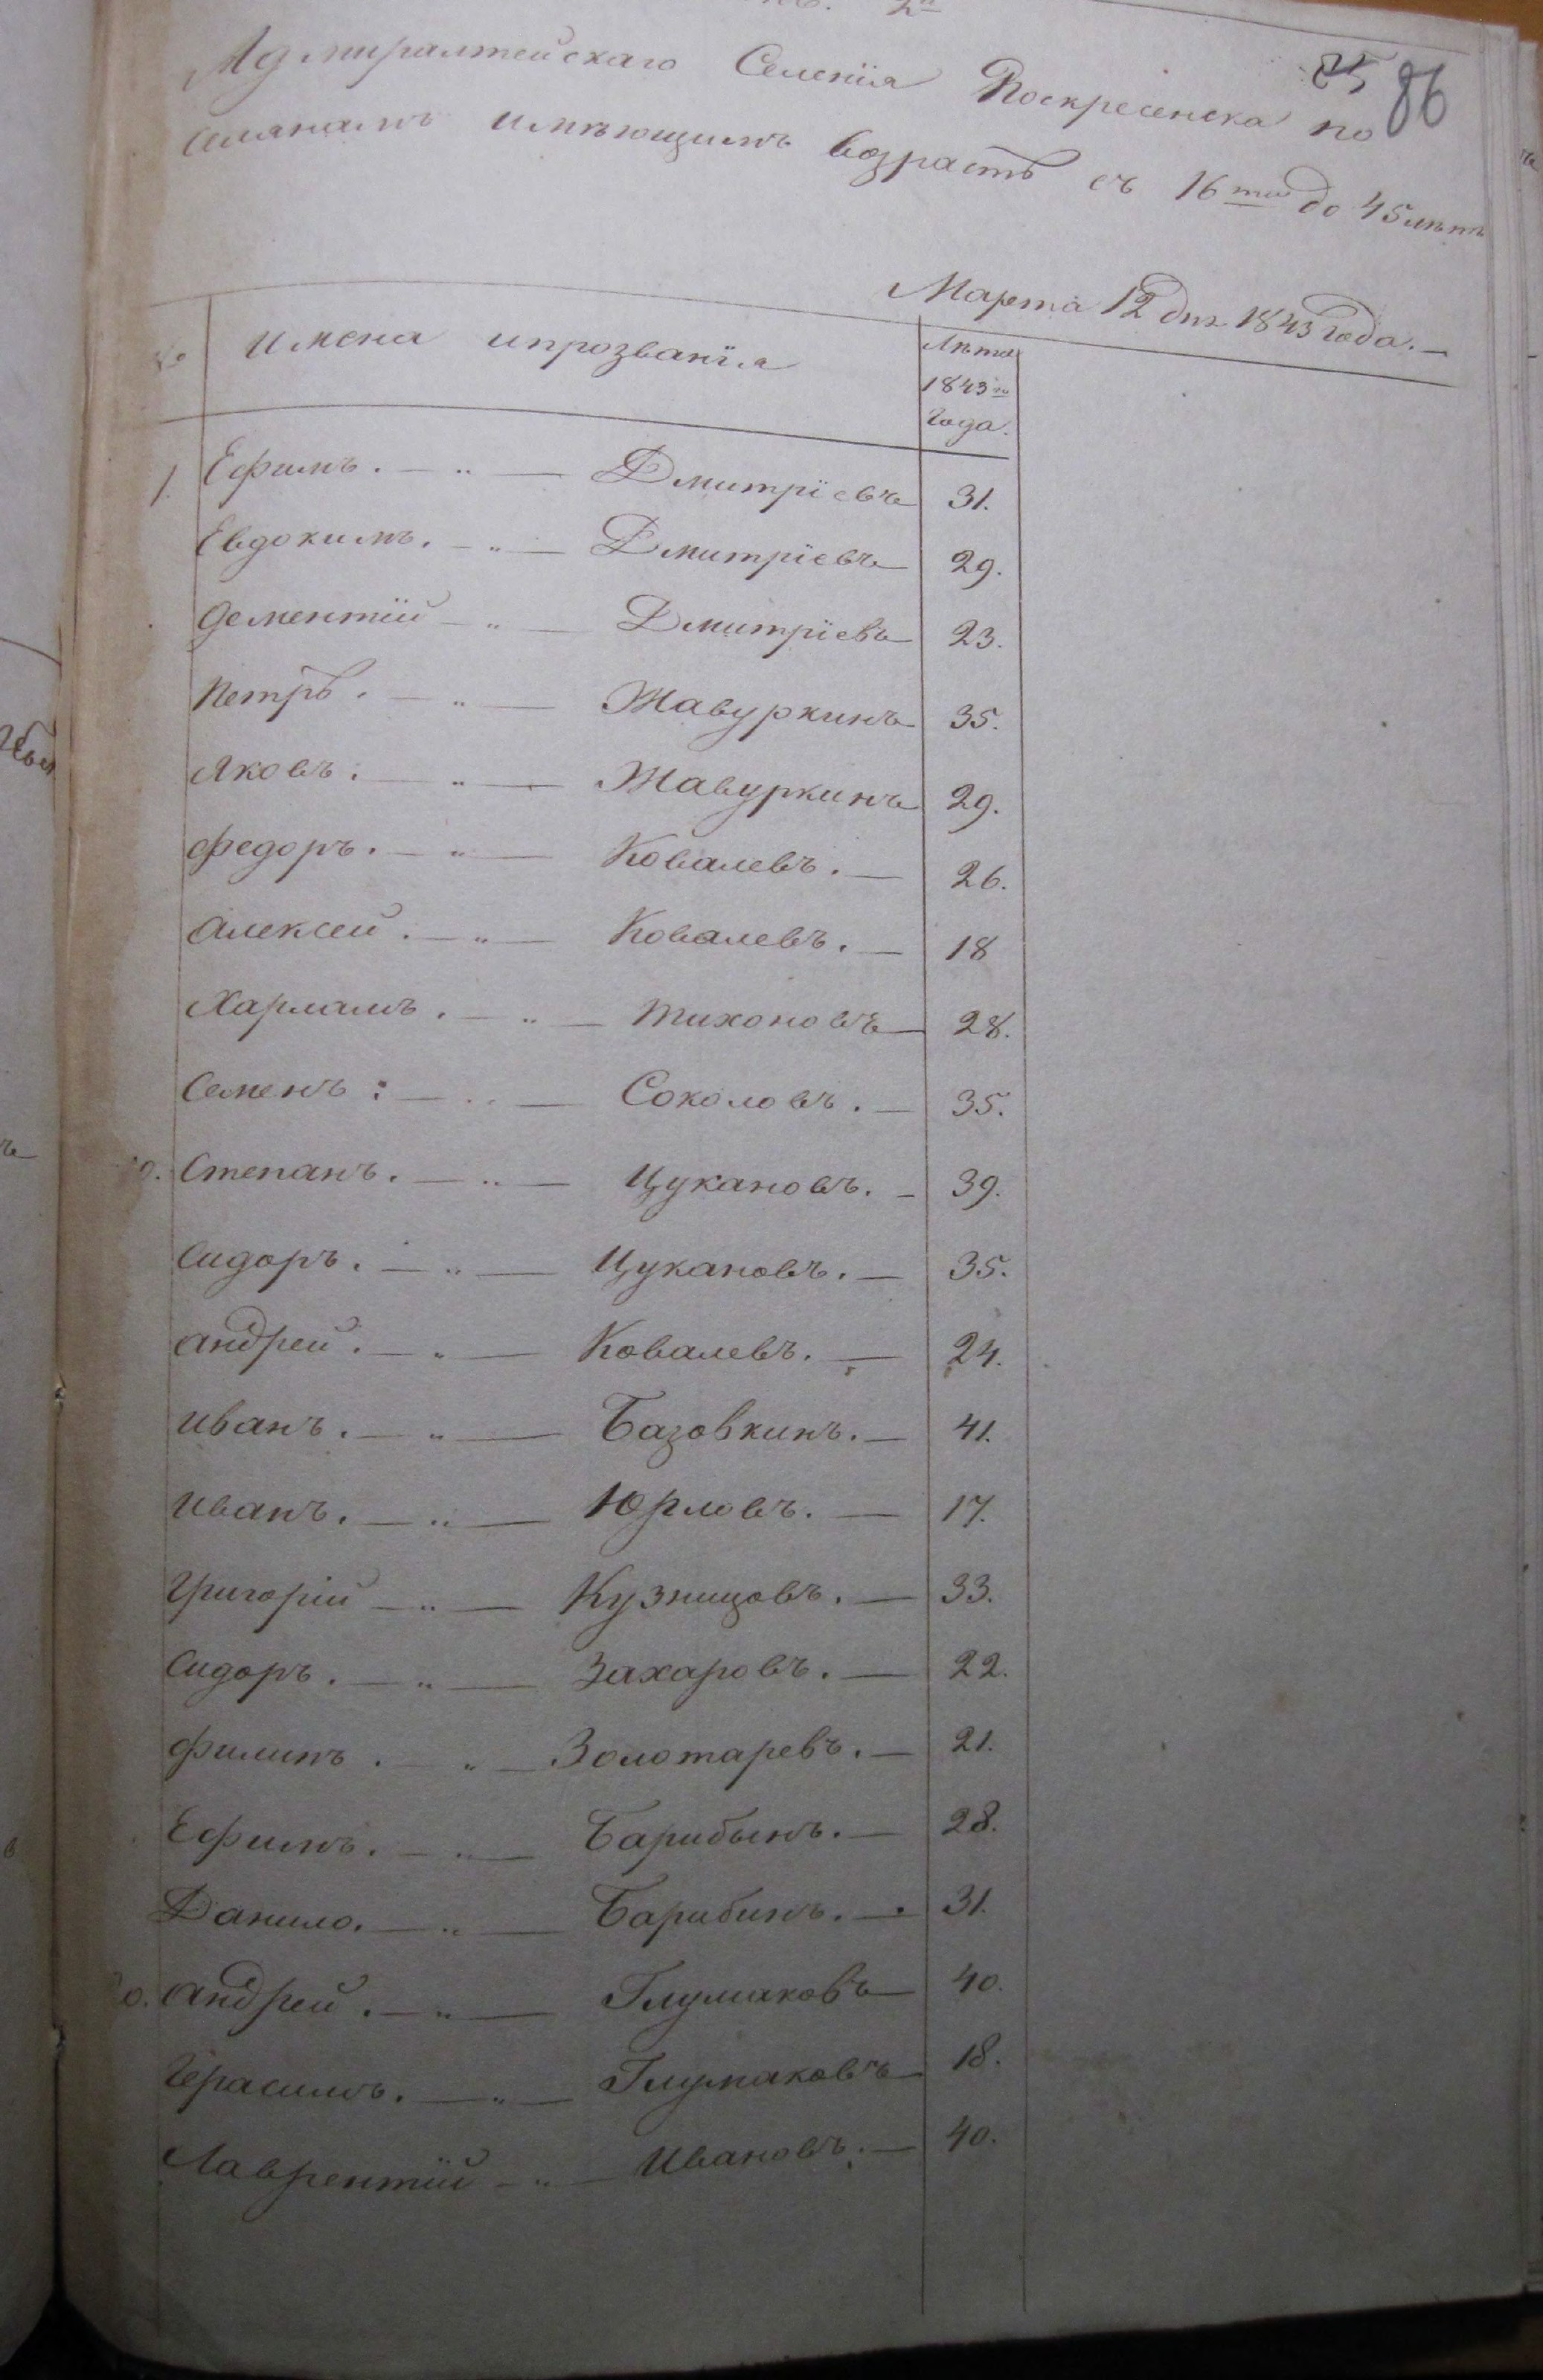 86
Адмиралтейскаго Селенія Воскресенска по
селянамъ имѣющимъ возрастъ съ 16ти до 45 лѣтъ
Марта 12 дня 1843 года. —
№ имена ипрозванія Лѣта
1843го
года.
1. Ефимъ. — „ — Дмитріевъ 31.
Евдокимъ. — „ — Дмитріевъ 29.
Дементій — „ — Дмитріевъ 23.
Петръ. — „ — Жавуркинъ 35.
Яковъ. — „ — Жавуркинъ 29.
Федоръ. — „ — Ковалевъ. — 26.
Алексей. — „ — Ковалевъ. — 18
Харламъ. — „ — Тихоновъ 28.
Семенъ: — „ — Соколовъ. — 35.
Степанъ. — „ — Цукановъ. — 39.
Сидоръ. — „ — Цукановъ. — 35.
Андрей. — „ — Ковалевъ. — 24.
Иванъ. — „ — Базовкинъ. — 41.
Иванъ. — „ — Юрловъ. — 17.
Григорій — „ — Кузницовъ. — 33.
Сидоръ. — „ — Захаровъ. — 22.
Филипъ. — „ — Золотаревъ. — 21.
Ефимъ. — „ — Барибынъ. — 28.
Данило. — „ — Барибинъ. — 31.
Андрей. — „ — Глумаковъ 40.
Герасимъ. — „ — Глумаковъ 18.
Лаврентій — „ — Ивановъ. — 40.